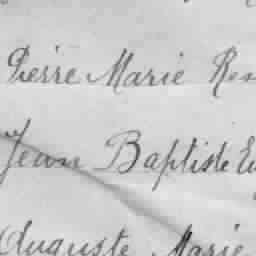 Pierre Marie
Jean Baptiste
Auguste Marie